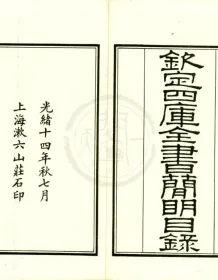 欽定四庫全書簡明目錄
光緒十四年秋七月
上海漱六山莊石印